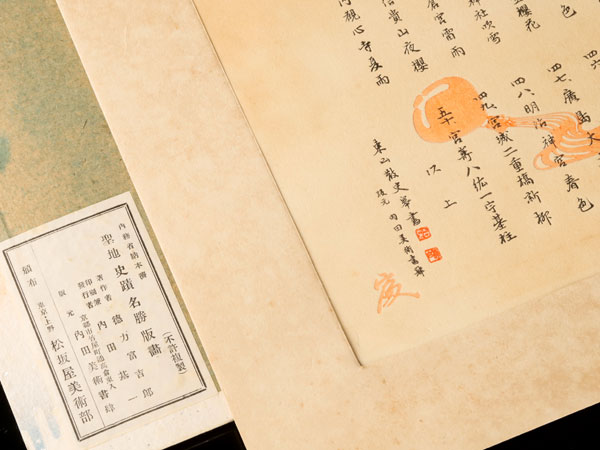 四六、
色
四七、廣島大
櫻花
四八、明治神宮春色
神社吹雪
四九、宮城二重橋新柳
宮雷雨
五十、宮崎八紘一宇基柱
賞山夜櫻
以上
内觀心寺夏雨
東山散史筆書
版元 内田美術書肆
内務省納本濟
聖地史蹟名勝版畫
(不許複製)
著作者 德力富吉郎
印刷兼發行者 内田基一
版元 内田美術書肆
頒布 東京・上野 松坂屋美術部